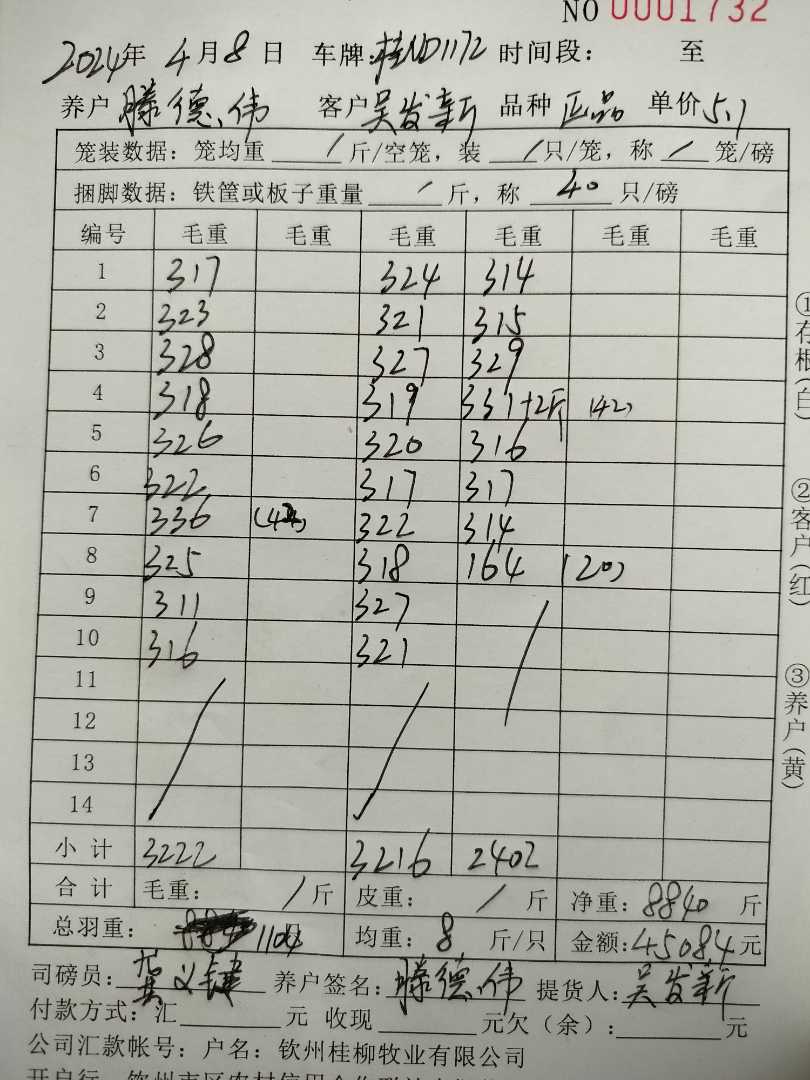 NO 0001732
2024年 4月8日 车牌:桂ND1172 时间段: 至
养户 滕德伟 客户 吴发新 品种 正品 单价 5.1
笼装数据：笼均重 / 斤/空笼，装 / 只/笼，称 / 笼/磅
捆脚数据：铁筐或板子重量 / 斤，称 40 只/磅
编号 毛重 毛重 毛重 毛重 毛重 毛重
1 317 324 314
2 323 321 315
3 328 327 329
4 318 319 331+2斤 (42)
5 326 320 316
6 322 317 317
7 336 322 314
8 325 318 164 (20)
9 311 327
10 316 321
11
12
13
14
小计 3222 3216 2402
合计 毛重： / 斤 皮重： / 斤 净重：8840 斤
总羽重： 1104 均重：8 斤/只 金额：45084 元
司磅员： 龚义键 养户签名：滕德伟 提货人：吴发新
付款方式：汇 元 收现 元欠（余）： 元
公司汇款帐号：户名：钦州桂柳牧业有限公司
①存根(白)
②客户(红)
③养户(黄)